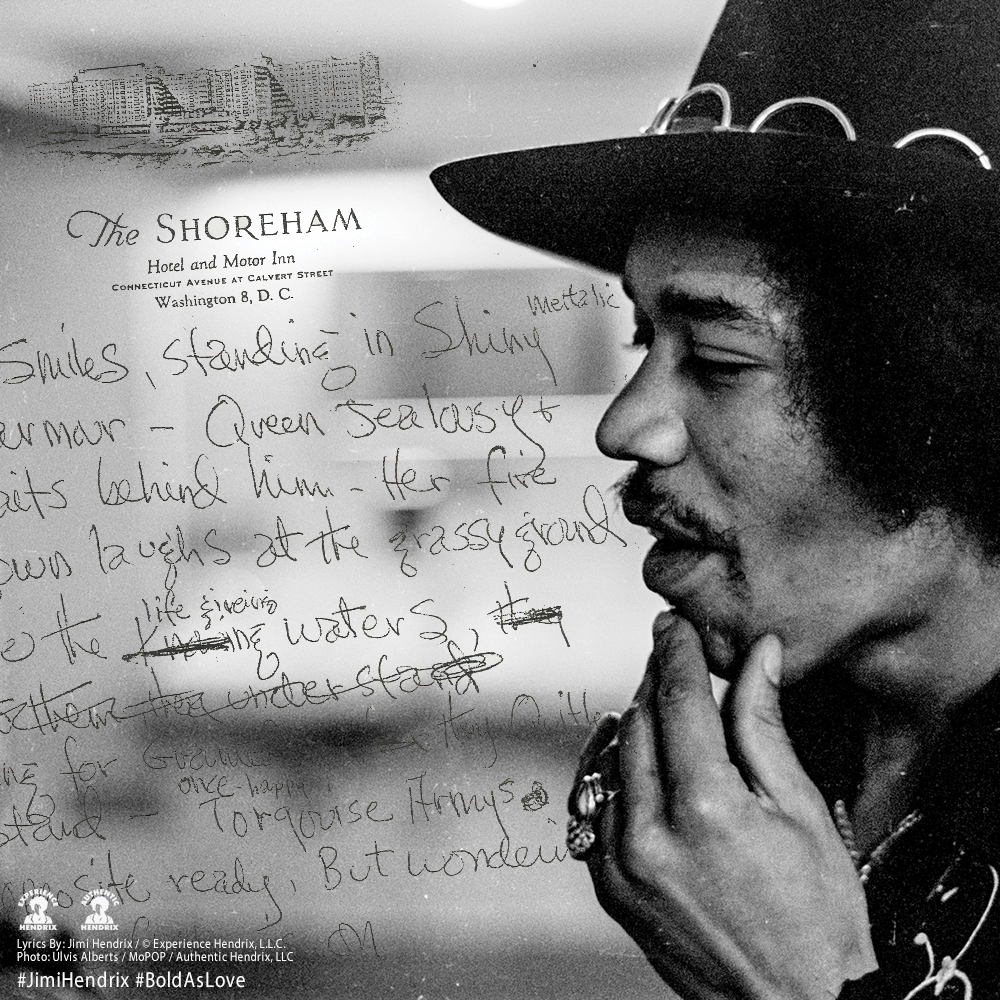 The SHOREHAM
Hotel and Motor Inn
CONNECTICUT AVENUE AT CALVERT STREET
Washington 8, D. C.
metalic
Smiles, standing in Shiny
armour - Queen Jealousy
aits behind him - Her fire
own laughs at the grassy ground
life giveing
the waters,
understand
for
once-happy
stand - Torqouise Armys
osite ready, But wonder
EXPERIENCE HENDRIX
AUTHENTIC HENDRIX
Lyrics By: Jimi Hendrix / © Experience Hendrix, L.L.C.
Photo: Ulvis Alberts / MoPOP / Authentic Hendrix, LLC
#JimiHendrix #BoldAsLove